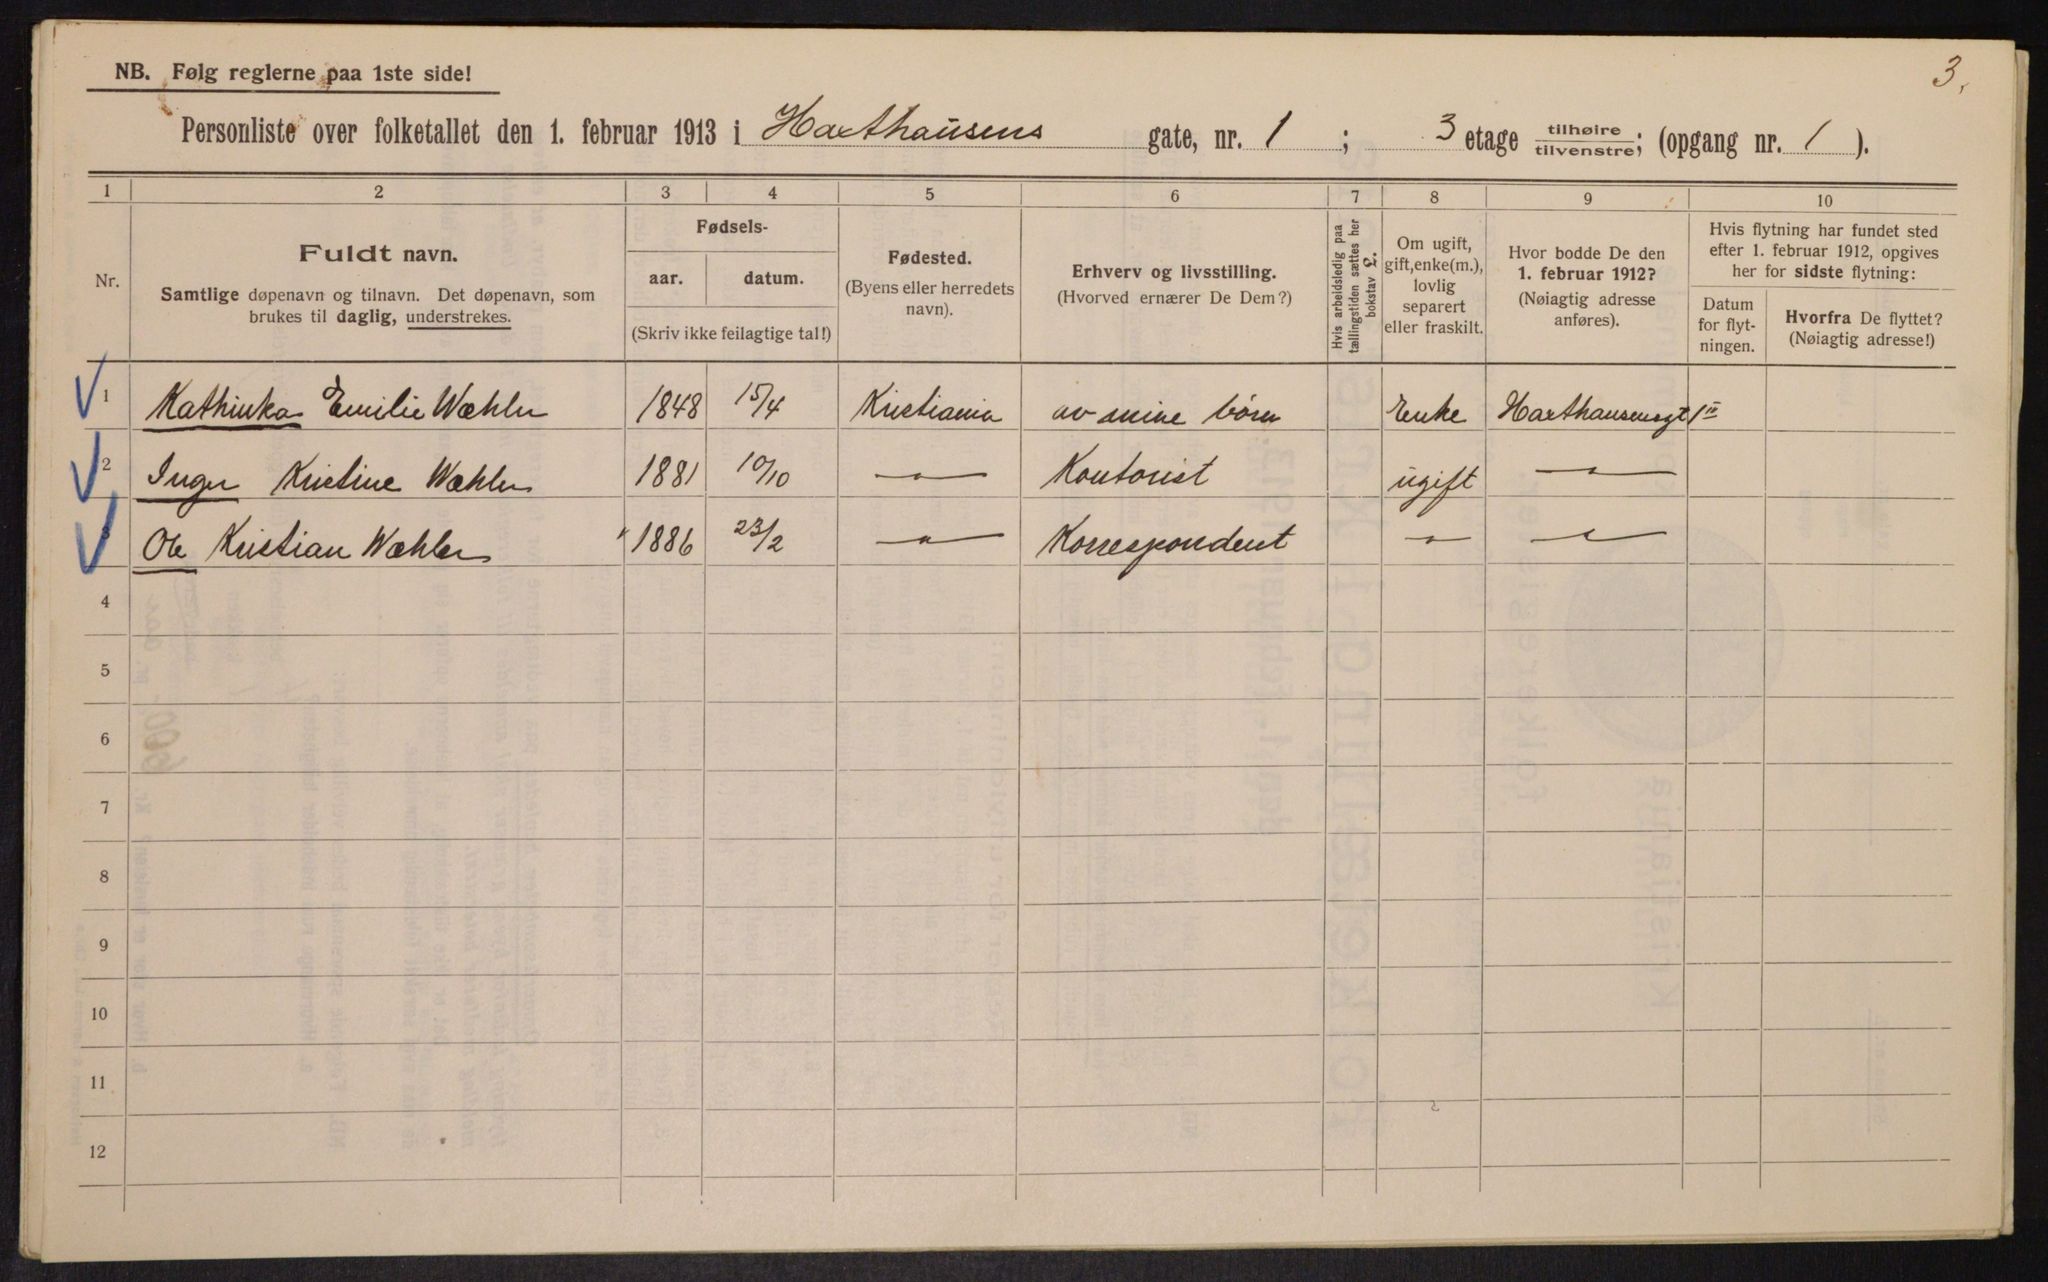 3.
NB. Følg reglerne paa 1ste side!
Personliste over folketallet den 1. februar 1913 i Haxthausens gate, nr. 1 ; 3 etage tilhøire tilvenstre; (opgang nr. 1 ).
1 2 3 4 5 6 7 8 9 10
Nr.
Fuldt navn.
Samtlige døpenavn og tilnavn. Det døpenavn, som
brukes til daglig, understrekes.
Fødsels-
aar. datum.
(Skriv ikke feilagtige tal!)
Fødested.
(Byens eller herredets
navn).
Erhverv og livsstilling.
(Hvorved ernærer De Dem?)
Hvis arbeidsledig paa
tællingstiden sættes her
bokstav L.
Om ugift,
gift, enke(m.),
lovlig
separert
eller fraskilt.
Hvor bodde De den
1. februar 1912?
(Nøiagtig adresse
anføres).
Hvis flytning har fundet sted
efter 1. februar 1912, opgives
her for sidste flytning:
Datum
for flyt-
ningen.
Hvorfra De flyttet?
(Nøiagtig adresse!)
1 Kathinka Emilie Wæhler 1848 15/4 Kristiania av mine børn Enke Haxthausensgt 1 IV
2 Inger Kristine Wæhler 1881 10/10 —"— Kontorist ugift —"—
3 Ole Kristian Wæhler 1886 23/2 —"— Korrespondent —"— —"—
4
5
6
7
8
9
10
11
12